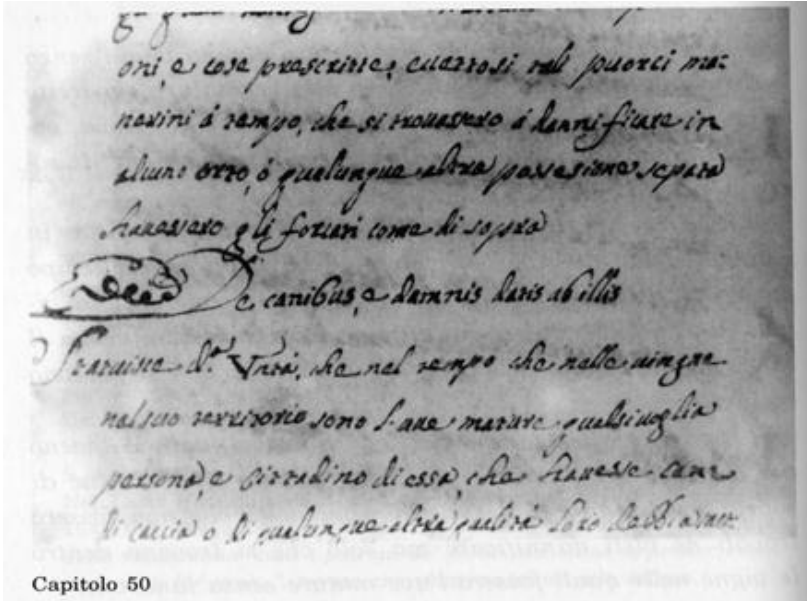 oni, e cose prescritte, eccettosi tali puorci ma:
nerini á tempo, che si trouassero á dannificare in
alcuno orto, ó qualunque altra possesione seperata
hauessero gli forcari come di sopra
De canibus, e damnis datis ab illis
Statuisce d.ᵃ Vnitá, che nel tempo che nelle uingne
nel suo territorio sono l'uue mature qualsiuoglia
persona, e Cittadino di essa, che hauesse cane
di caccia o di qualunque altra qualitá loro debbia
Capitolo 50